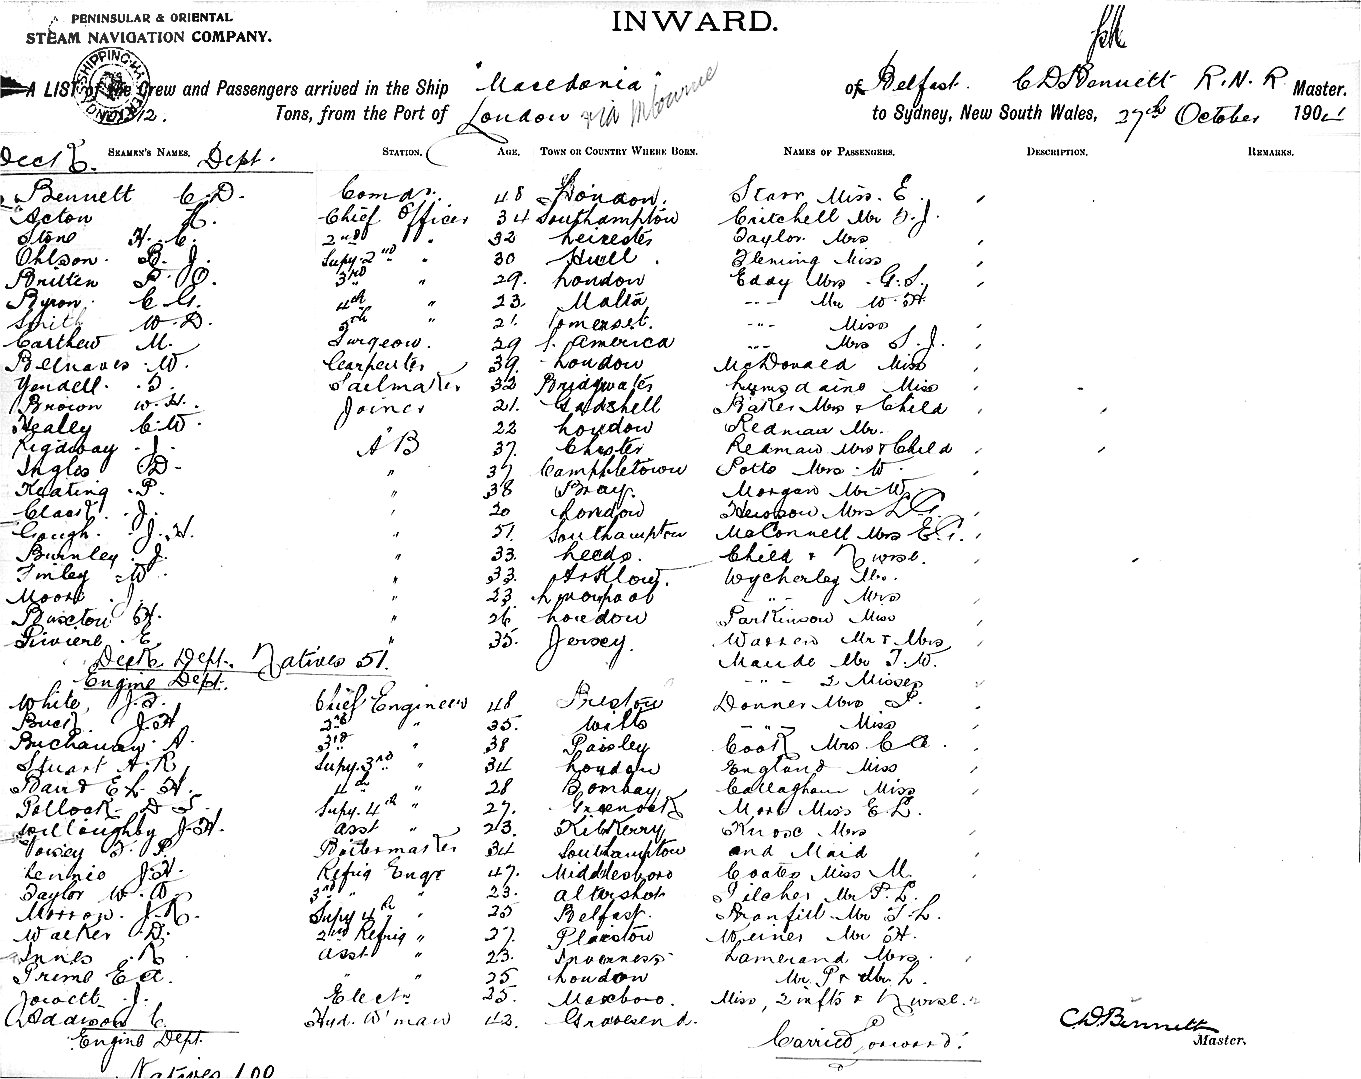 PENINSULAR & ORIENTAL
STEAM NAVIGATION COMPANY.
INWARD.
A LIST of the Crew and Passengers arrived in the Ship "Macedonia" of Belfast. C D Bennett R. N. R Master.
Tons, from the Port of London via Mbourne to Sydney, New South Wales, 27th October 190
SEAMEN'S NAMES. STATION. AGE. TOWN OR COUNTRY WHERE BORN. NAMES OF PASSENGERS. DESCRIPTION. REMARKS.
Deck Dept.
Bennett C. D. Comdr. 48 London. Starr Miss. E.
Acton Chief Officer 34 Southampton Critchell Mr
Stone H. C. 2nd " 32 Leicester Taylor Mrs
Ohlson B. J. Supy. 2nd " 30 Hull. Fleming Miss
Britten 3rd " 29. London Eddy Mrs G. S.
Byron C G. 4th " 23. Malta --- Mr W. H
Smith W. D. 5th " 21. Somerset. --- Miss
Carthew M. Surgeon. 29 S. America --- Mrs S. J.
Belnaves W. Carpenter 39. London McDonald Miss
Yendell Sailmaker 32 Bridgwater Lumsdaine Miss
Brown W. H. Joiner 21. Gadshell Baker Mrs & Child
Healey C. W 22 London Redman Mr.
Ridgway J. A B 37. Chester Redman Mrs & Child
Ingles D. " 37 Campbletown Potts Mrs. W.
Keating P. " 38 Bray. Morgan Mr. W.
Clark J. " 20 London Mrs
Gough. J. H. " 51. Southampton McConnell Mrs E. G.
Burnley J. " 33. Leeds. Child & Nurse.
Finley W. " 33. Arklow. Wycherley Mr.
Moore J. " 23 Liverpool --- Mrs
Buxton H. " 26 London Parkinson Miss
Riviere E. " 35. Jersey. Warren Mr & Mrs
Deck Dept. Natives 51. Maude Mr T. W.
Engine Dept. --- 3 Misses
White, J. Chief Engineer 48 Preston Donner Mrs
Buck J. H 2nd " 35. Wilts --- Miss
Buchanan A. 3rd " 38 Paisley Cook Mrs C A.
Stuart A. R. Supy. 3rd " 34 London England Miss
Baud E. L. H. 4th " 28 Bombay Callaghan Miss
Pollock D Supy. 4th " 27. Greenock More Miss E. L.
Willoughby J. H. asst " 23. Kilkerry Knose Mrs
Boilermaker 34 Southampton and Maid
Lennie J. H. Refrig Engr 47. Middlesboro Coates Miss M.
Taylor W. 3rd " " 23. Aldershot Pilcher Mr P. L.
Morrow. J. R. Supy 4th " 25 Belfast. Mr T. L.
Walker D. 2nd Refrig " 27. Plaistow Weiner Mr H.
Innes R. asst " 23. Inverness Lamerand Mrs.
Prime E A. " " 25 London Mr. P & Mr. L.
Jowett J. Electn 25. Maxboro. Miss, 2 infts & Nurse.
Addison C. Hyd. W'man 42. Gravesend. Carried forward.
Engine Dept.
Natives 100
C D Bennett
Master.